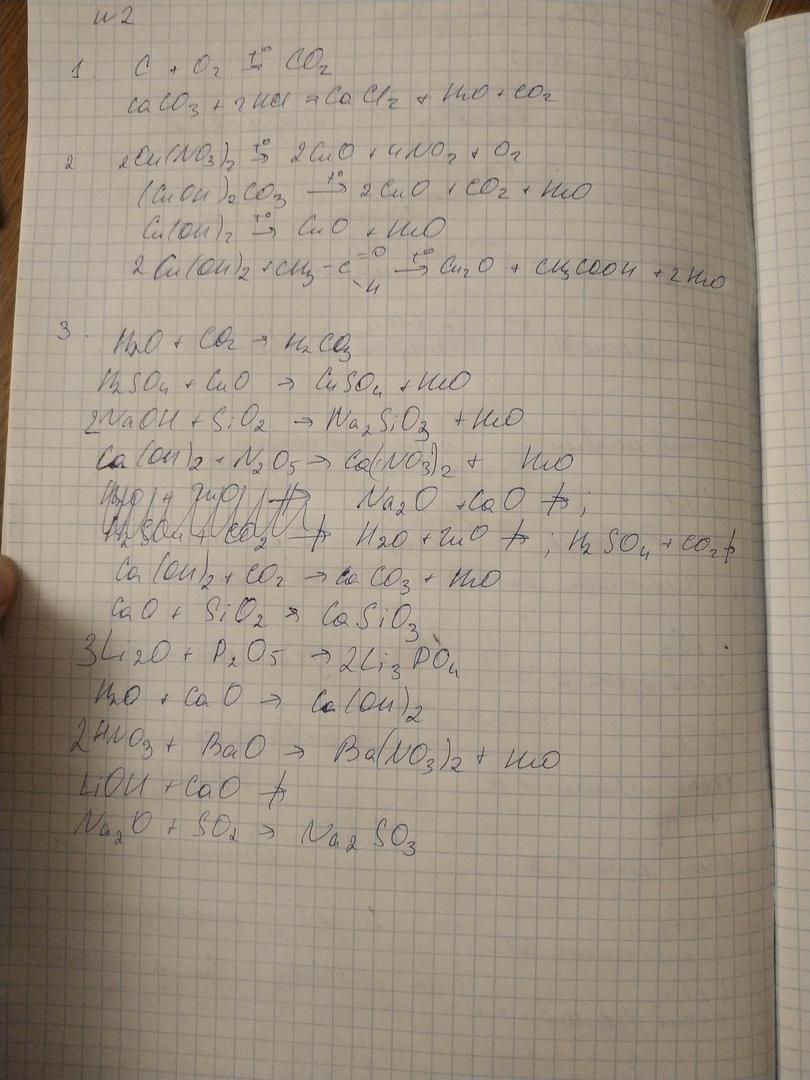 №2
1. C + O2 t°= CO2
CaCO3 + 2HCl = CaCl2 + H2O + CO2
2. 2Cu(NO3)2 t°→ 2CuO + 4NO2 + O2
(CuOH)2CO3 t°→ 2CuO + CO2 + H2O
Cu(OH)2 t°→ CuO + H2O
2Cu(OH)2 + CH3 - C =O -H t°→ Cu2O + CH3COOH + 2H2O
3. H2O + CO2 → H2CO3
H2SO4 + CuO → CuSO4 + H2O
2NaOH + SiO2 → Na2SiO3 + H2O
Ca(OH)2 + N2O5 → Ca(NO3)2 + H2O
Na2O + CaO ↛ ;
H2O + ZnO ↛ ; H2SO4 + CO2 ↛
Ca(OH)2 + CO2 → CaCO3 + H2O
CaO + SiO2 → CaSiO3
3Li2O + P2O5 → 2Li3PO4
H2O + CaO → Ca(OH)2
2HNO3 + BaO → Ba(NO3)2 + H2O
LiOH + CaO ↛
Na2O + SO2 → Na2SO3